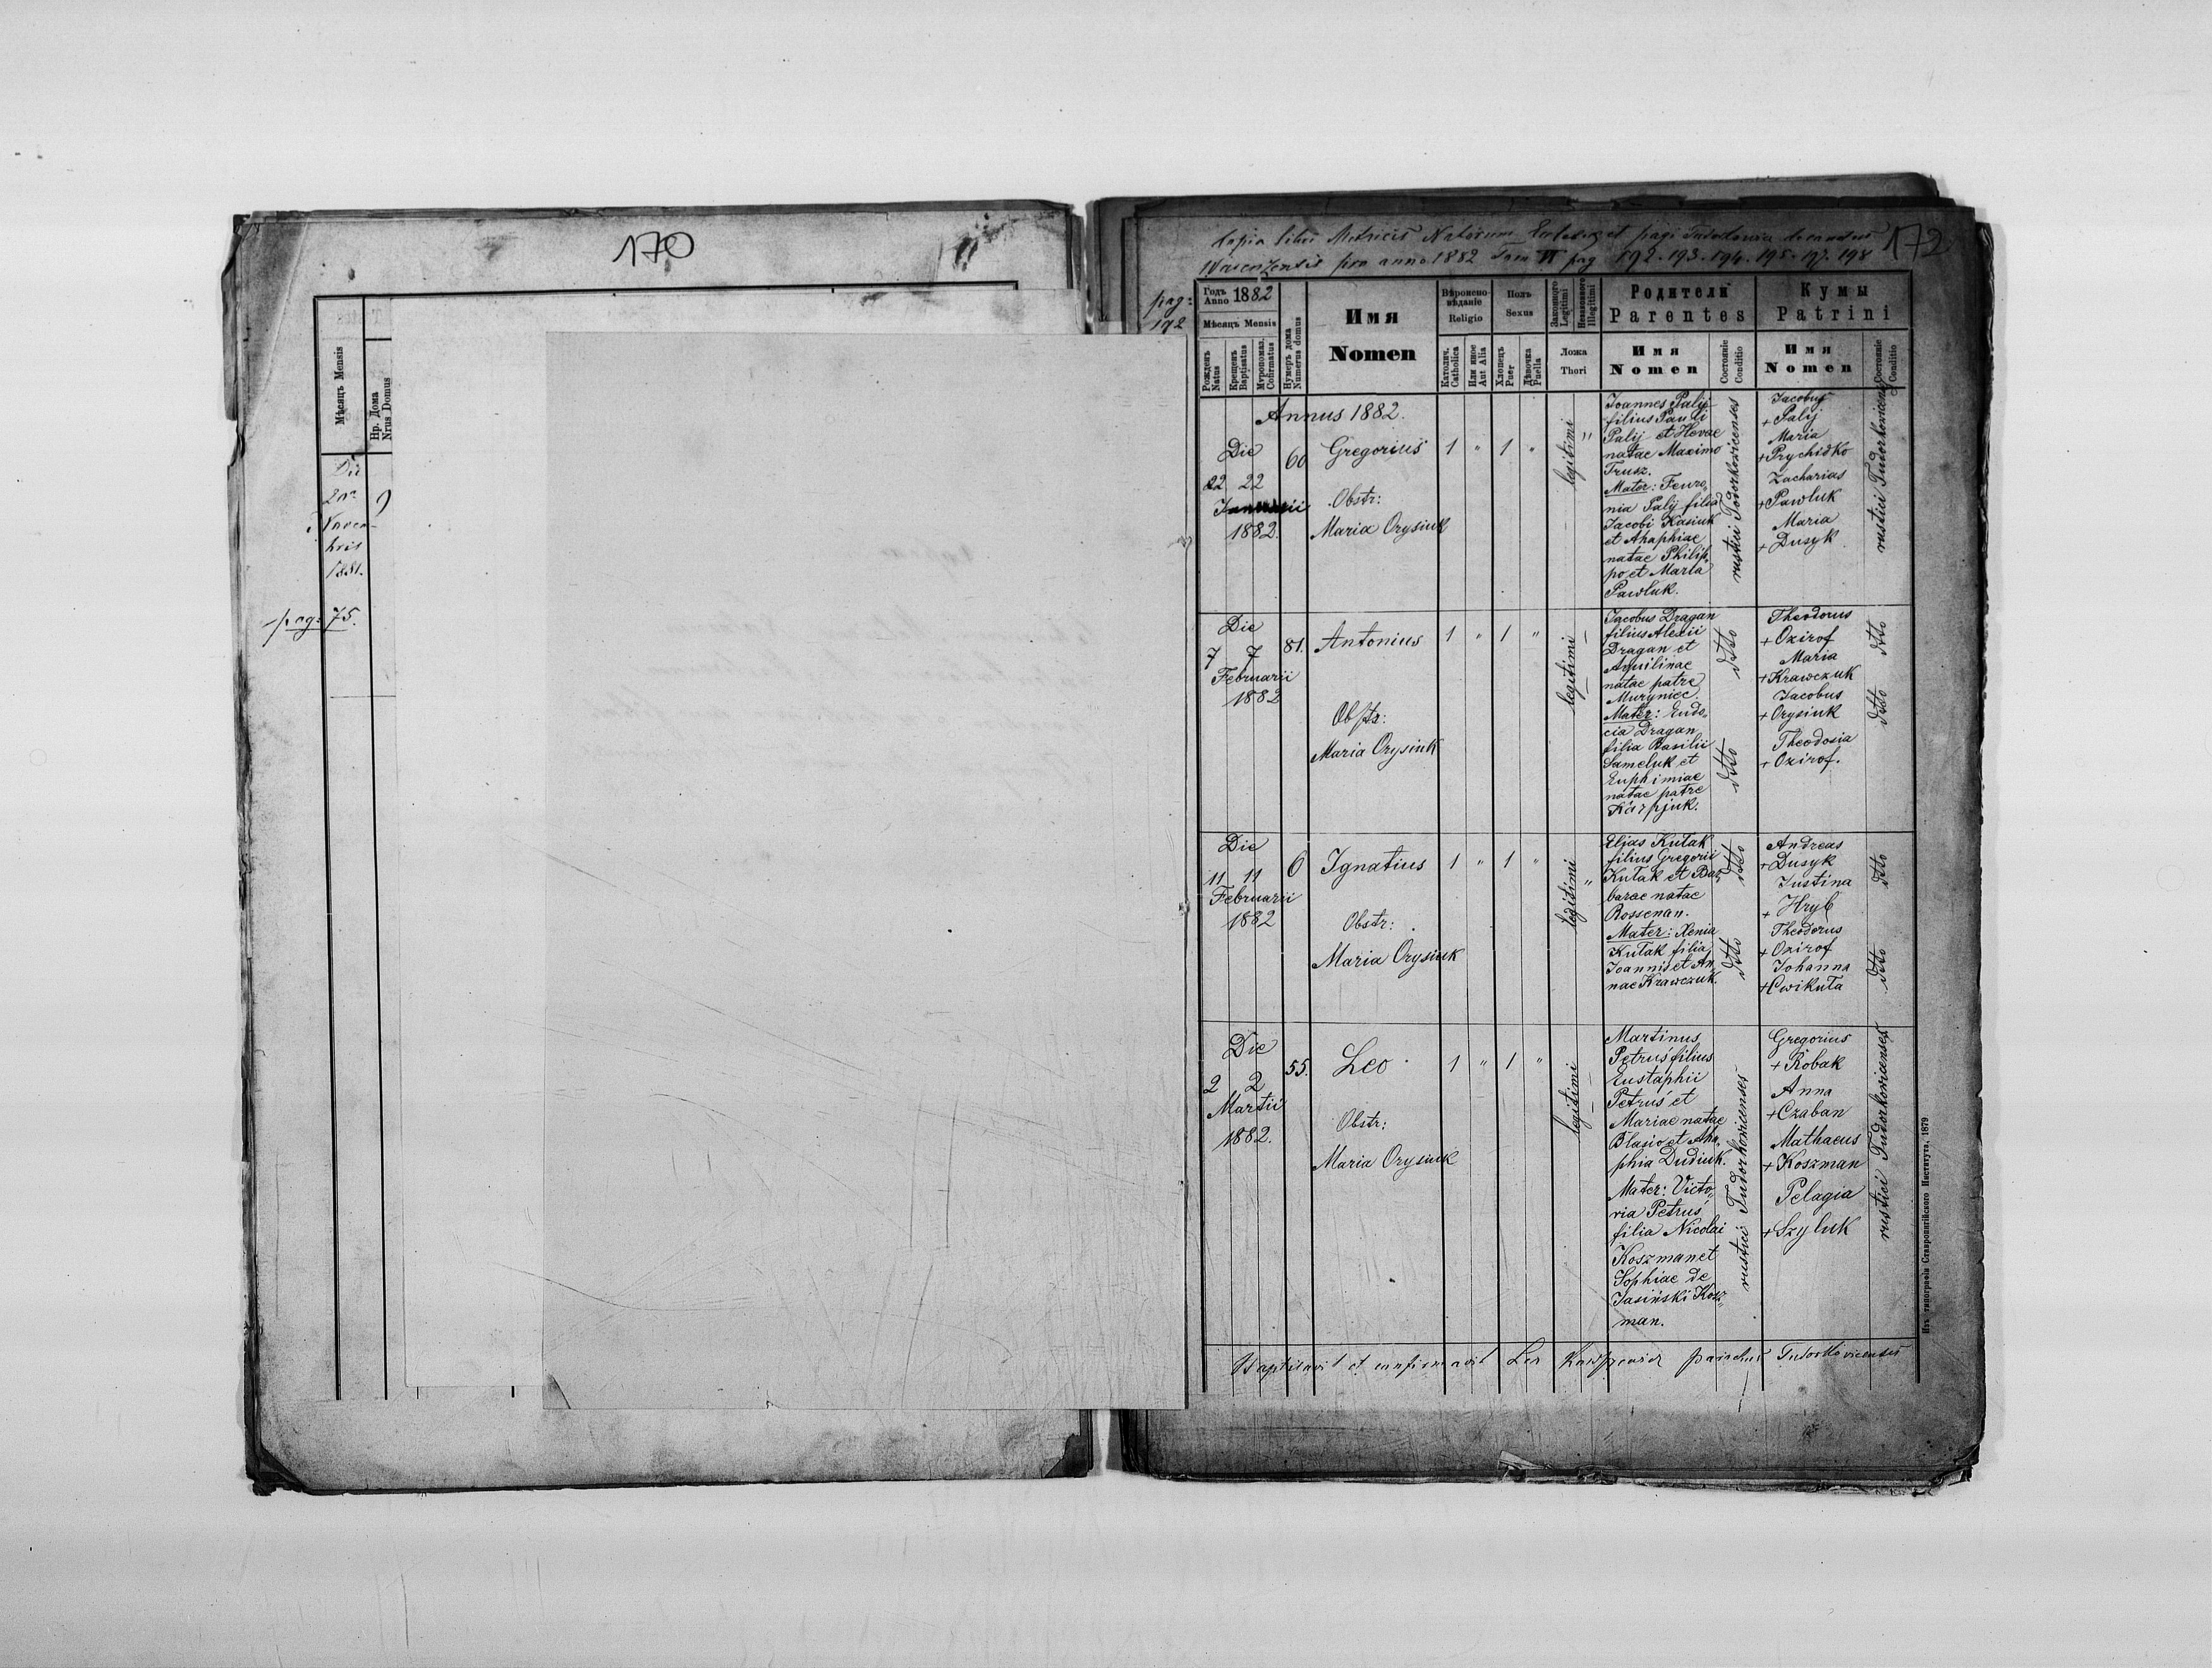 170
Мѣсяцъ Mensis
Нр. Дома
Nrus Domus
Die
9
1881.
pag: 75.
172
Copia libri Metricis Natorum pagi
pro anno 1882 Tom VI pag 192. 193. 194. 195. 197. 198
pag:
192
Годъ
Anno 1882
Мѣсяцъ Mensis
Рожденъ
Natus
Крещенъ
Baptisatus
Мѵропомаз.
Cofirmatus
Нумеръ дома
Numerus domus
Имя
Nomen
Вѣроиспо-
вѣданіе
Religio
Католич.
Catholica
Или иное
Aut Alia
Полъ
Sexus
Хлопецъ
Puer
Дѣвочка
Puella
Законного
Legitimi
Незаконного
Illegitimi
Ложа
Thori
Родители
Parentes
Имя
Nomen
Состояніе
Conditio
Кумы
Patrini
Имя
Nomen
Состояніе
Conditio
Annus 1882.
Die
22 22
Januarii
1882.
60
Gregorius
Obstr:
Maria Orysiuk
1 " 1 "
legitimi "
Joannes Palij
filius Pauli
Palij et Hevae
natae Maximo
Trusz.
Mater: Feuro„
nia Palij filia
Jacobi Kasiuk
et Ahaphiae
natae Philip„
po et Maria
Pawluk.
rustici Tudorkovicenses
Jacobus
+ Palij
Maria
+ Prychidko
Zacharias
+ Pawluk
Maria
+ Dusyk
rustici Tudorkovicenses
Die
7 7
Februarii
1882
81.
Antonius
Obstr:
Maria Orysiuk
1 " 1 "
legitimi
Jacobus Dragan
filius Alexii
Dragan et
Aquilinae
natae patre
Muryniec.
Mater: Eudo„
cia Dragan
filia Basilii
Sameluk et
Euphimiae
natae patre
Karpjuk.
dtto
dtto
Theodorus
+ Ozirof
Maria
+ Krawczuk
Jacobus
+ Orysiuk
Theodosia
+ Ozirof.
dtto
dtto
Die
11 11
Februarii
1882
6
Ignatius
Obstr:
Maria Orysiuk
1 " 1 "
legitimi "
Elias Kutak
filius Gregorii
Kutak et Bar„
barae natae
Rossenan.
Mater: Xenia
Kutak filia
Joannis et An„
nae Krawczuk.
dtto
dtto
Andreas
+ Dusyk
Justina
+ Hryb
Theodorus
+ Ozirof
Johanna
+ Cwikuta
dtto
dtto
Die
2 2
Martii
1882.
55.
Leo
Obstr:
Maria Orysiuk
1 " 1 "
legitimi
Martinus
Petrus filius
Eustaphii
Petrus et
Mariae natae
Blasio et Aha„
phia Dudiuk.
Mater: Victo„
ria Petrus
filia Nicolai
Koszman et
Sophiae de
Jasiński Kosz„
man.
rustici Tudorkovicenses
Gregorius
+ Robak
Anna
+ Czaban
Mathaeus
+ Koszman
Pelagia
+ Szyluk
rustici Tudorkovicenses
Baptisavit et confirmavit Leo parochus Tudorkovicensis
Изъ типографіи Ставропигійского Института, 1879